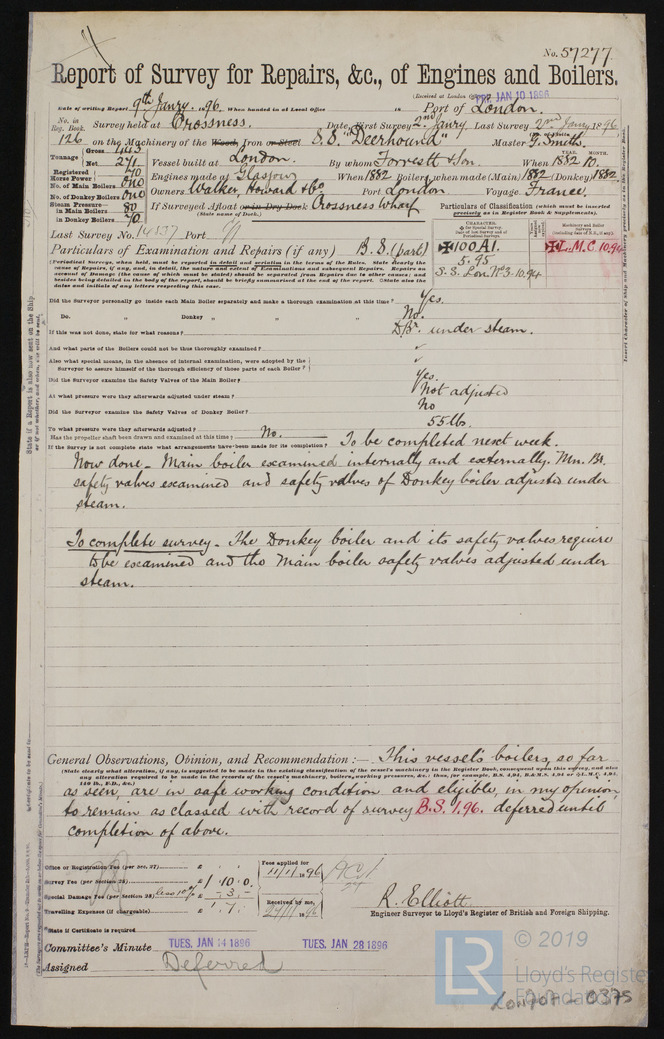 No. 57277
Report of Survey for Repairs, &c., of Engines and Boilers.
(Received at London Office FRI. JAN 10 1896
Date of writing Report 9th Janry. 1896. When handed in at Local Office 18 Port of London.
No. in Reg. Book. Survey held at Crossness. Date, First Survey 2nd Janry Last Survey 2nd Janry 1896
126 on the Machinery of the Wood, Iron or Steel S.S. "Deerhound" Master G. Smith.
Tonnage Gross 483 Net 271 Vessel built at London. By whom Forrestt & Son. When 1882 YEAR. MONTH. 10.
Registered Horse Power 70 Engines made at Glasgow When 1882 Boilers, when made (Main) 1882 (Donkey) 1882
No. of Main Boilers One
No. of Donkey Boilers One Owners Walker, Howard & Co Port London Voyage France.
Steam Pressure in Main Boilers 80 If Surveyed Afloat or in Dry Dock Crossness Wharf
in Donkey Boilers 70 (State name of Dock.)
Particulars of Classification (which must be inserted precisely as in Register Book & Supplements).
Last Survey No. 14537 Port
CHARACTER.
✠100A1.
5.95
S.S. Lon. No.3. 10.94
✠L.M.C. 10.94
Particulars of Examination and Repairs (if any) B.S. (part)
Did the Surveyor personally go inside each Main Boiler separately and make a thorough examination at this time? Yes.
Do. Donkey " " " No.
If this was not done, state for what reasons? D.Br. under steam.
And what parts of the Boilers could not be thus thoroughly examined? ✓
Also what special means, in the absence of internal examination, were adopted by the
Surveyor to assure himself of the thorough efficiency of those parts of each Boiler? ✓
Did the Surveyor examine the Safety Valves of the Main Boiler? Yes.
At what pressure were they afterwards adjusted under steam? Not adjusted
Did the Surveyor examine the Safety Valves of Donkey Boiler? No
To what pressure were they afterwards adjusted? 55 lb.
Has the propeller shaft been drawn and examined at this time? No.
If the Survey is not complete state what arrangements have been made for its completion? To be completed next week.
Now done - Main boiler examined internally and externally. Mn. Br.
safety valves examined and safety valves of Donkey boiler adjusted under
steam.
To complete survey - The Donkey boiler and its safety valves require
to be examined and the main boiler safety valves adjusted under
steam.
General Observations, Opinion, and Recommendation :— This vessel's boilers, so far
as seen, are in safe working condition and eligible, in my opinion,
to remain as classed with record of survey B.S. 1.96. deferred until
completion of above.
Office or Registration Fee (per Sec. 27) £
Survey Fee (per Section 28) £ 1.10.0.
Special Damage Fee (per Section 28) less 10% £ .3.
Travelling Expenses (if chargeable) £ 1.7.
Fees applied for 11/1/1896
Received by me,
R. Elliott
Engineer Surveyor to Lloyd's Register of British and Foreign Shipping.
State if Certificate is required
Committee's Minute TUES. JAN 14 1896 TUES. JAN 28 1896
Assigned Deferred
LR
© 2019
Lloyd's Register
Foundation